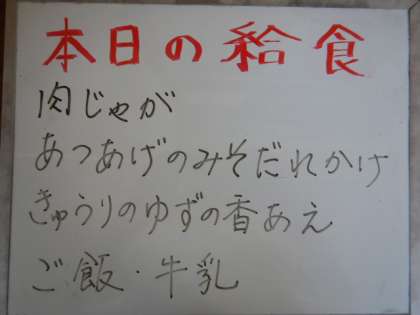 本日の給食
肉じゃが
あつあげのみそだれかけ
きゅうりのゆずの香あえ
ご飯・牛乳